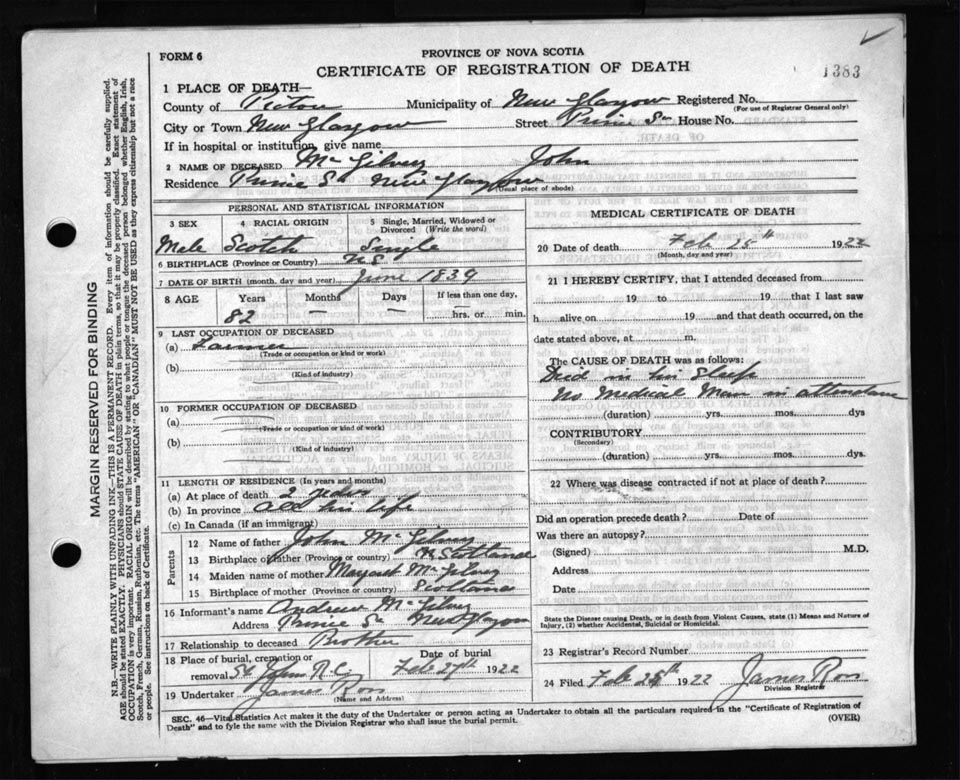 FORM 6
PROVINCE OF NOVA SCOTIA
CERTIFICATE OF REGISTRATION OF DEATH
1383
1 PLACE OF DEATH—
County of Pictou Municipality of New Glasgow Registered No.
(For use of Registrar General only)
City or Town New Glasgow Street Prince St House No.
If in hospital or institution, give name
2 NAME OF DECEASED McGilvery John
Residence Prince St New Glasgow
(Usual place of abode)
PERSONAL AND STATISTICAL INFORMATION
3 SEX 4 RACIAL ORIGIN 5 Single, Married, Widowed or Divorced (Write the word)
Male Scotch Single
6 BIRTHPLACE (Province or Country) N.S.
7 DATE OF BIRTH (month, day and year) June 1839
8 AGE Years Months Days If less than one day,
82 — — hrs. or min.
9 LAST OCCUPATION OF DECEASED
(a) Farmer
(Trade or occupation or kind or work)
(b)
(Kind of industry)
10 FORMER OCCUPATION OF DECEASED
(a)
(Trade or occupation or kind of work)
(b)
(Kind of industry)
11 LENGTH OF RESIDENCE (In years and months)
(a) At place of death 2 years
(b) In province All his life
(c) In Canada (if an immigrant)
Parents
12 Name of father John McGilvery
13 Birthplace of father (Province or country) Scotland
14 Maiden name of mother Margaret McGilvery
15 Birthplace of mother (Province or country) Scotland
16 Informant's name Andrew McGilvery
Address Prince St New Glasgow
17 Relationship to deceased Brother
18 Place of burial, cremation or removal Date of burial
St Johns Feb 27th 1922
19 Undertaker James Ross
(Name and Address)
MEDICAL CERTIFICATE OF DEATH
20 Date of death Feb 25th 1922
(Month, day and year)
21 I HEREBY CERTIFY, that I attended deceased from
19 to 19 that I last saw
h alive on 19 and that death occurred, on the
date stated above, at m.
The CAUSE OF DEATH was as follows:
Died in his Sleep
No Medical Man in attendance
(duration) yrs. mos. dys
CONTRIBUTORY
(Secondary)
(duration) yrs. mos. dys.
22 Where was disease contracted if not at place of death?
Did an operation precede death? Date of
Was there an autopsy?
(Signed) M.D.
Address
Date
State the Disease causing Death, or in death from Violent Causes, state (1) Means and Nature of
Injury, (2) whether Accidental, Suicidal or Homicidal.
23 Registrar's Record Number
24 Filed Feb 25th 1922 James Ross
Division Registrar
SEC. 46—Vital Statistics Act makes it the duty of the Undertaker or person acting as Undertaker to obtain all the particulars required in the "Certificate of Registration of
Death" and to fyle the same with the Division Registrar who shall issue the burial permit.
(OVER)
MARGIN RESERVED FOR BINDING
N.B.—WRITE PLAINLY WITH UNFADING INK—THIS IS A PERMANENT RECORD. Every item of information should be carefully supplied.
AGE should be stated EXACTLY. PHYSICIANS should STATE CAUSE OF DEATH in plain terms, so that it may be properly classified. Exact statement of
OCCUPATION is very important. RACIAL ORIGIN will be described by stating to what people or tongue the deceased person belonged whether English, Irish,
Scotch, French, German, Russian, Ruthenian, etc. The terms "AMERICAN" OR "CANADIAN" MUST NOT BE USED as they express citizenship but not a race
or people. See instructions on back of Certificate.